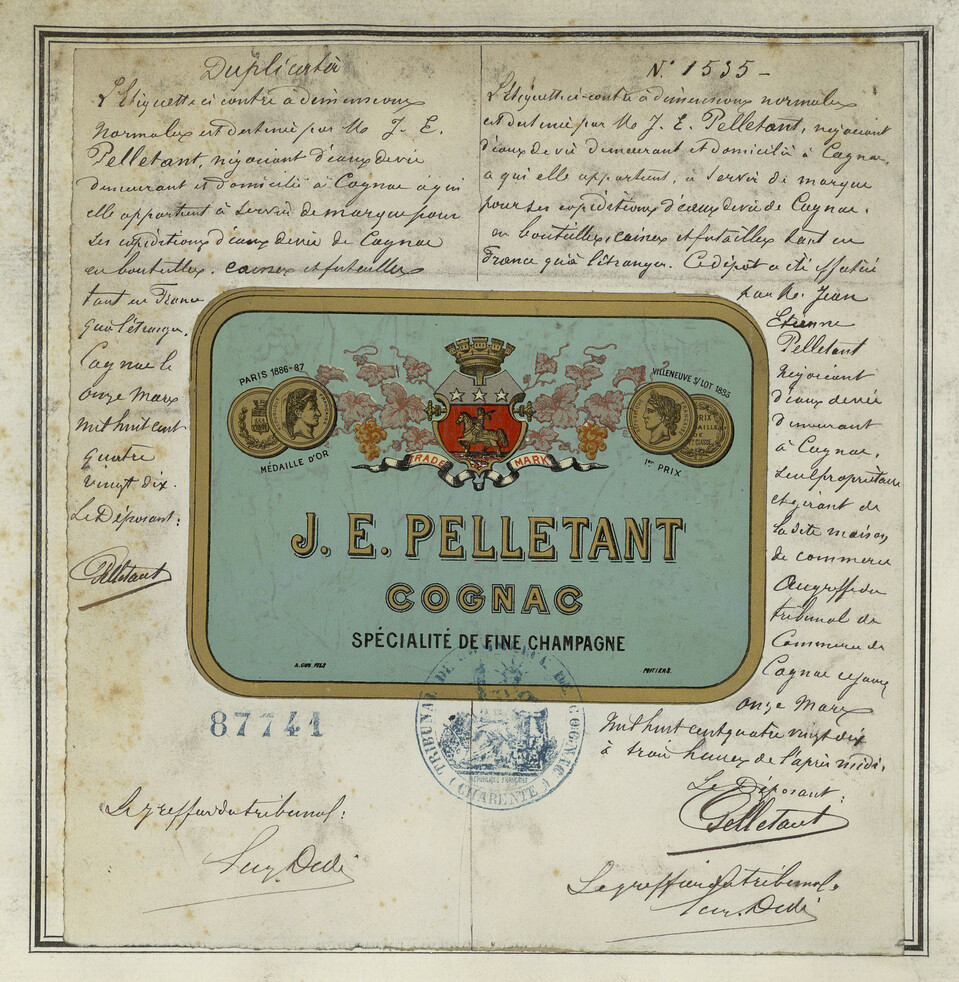 Duplicata
L'Etiquette ci contre à dimensions
normales est destinée par M. J. E.
Pelletant, négociant d'eaux de vie
demeurant et domicilié à Cognac à qui
elle appartient à servir de marque pour
ses expéditions d'eaux de vie de Cognac
en bouteilles, caisses et futailles
tant en France
qu'à l'étranger.
Cognac le
onze Mars
mil huit cent
quatre
vingt dix.
Le Déposant:
Pelletant
N° 1535 -
L'Etiquette ci-contre à dimensions normales
est destinée par M. J. E. Pelletant, négociant
d'eaux de vie demeurant et domicilié à Cognac,
à qui elle appartient, à servir de marque
pour ses expéditions d'eaux de vie de Cognac.
en bouteilles, caisses et futailles tant en
France qu'à l'étranger. Ce dépôt a été effectué
par M. Jean
Etienne
Pelletant
négociant
d'eaux de vie
demeurant
à Cognac,
seul propriétaire
et gérant de
la dite maison
de commerce
Au greffe du
tribunal de
Commerce de
Cognac ce jour
onze Mars
mil huit cent quatre vingt dix
à trois heures de l'après midi.
Le Déposant:
Pelletant
PARIS 1886-87
MÉDAILLE D'OR
VILLENEUVE S/LOT 1885
1ER PRIX
TRADE MARK
J. E. PELLETANT
COGNAC
SPÉCIALITÉ DE FINE CHAMPAGNE
POITIERS.
87741
TRIBUNAL DE COMMERCE DE COGNAC
RÉPUBLIQUE FRANÇAISE
(CHARENTE)
Le greffier du tribunal:
Le greffier du tribunal.